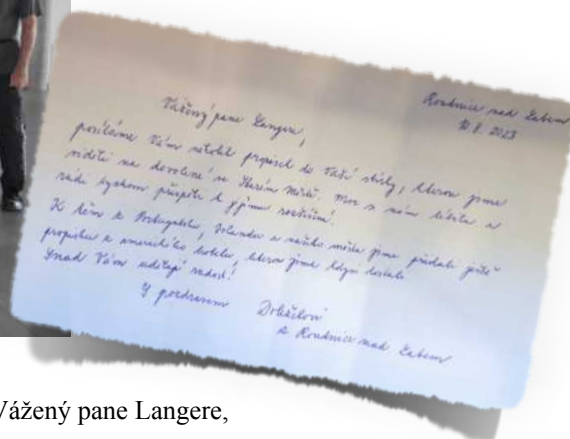 Roudnice nad Labem
10. 8. 2023
Vážený pane Langere,
posíláme Vám několik propisek do Vaší sbírky, kterou jsme
viděli na dovolené ve Starém Městě. Moc se nám líbila a
rádi bychom přispěli k jejímu rozšíření.
K těm z Portugalska, Irlandu a našeho města jsme přidali ještě
propisku z amerického hotelu, kterou jsme kdysi dostali.
Snad Vám udělají radost!
S pozdravem
z Roudnice nad Labem
Vážený pane Langere,